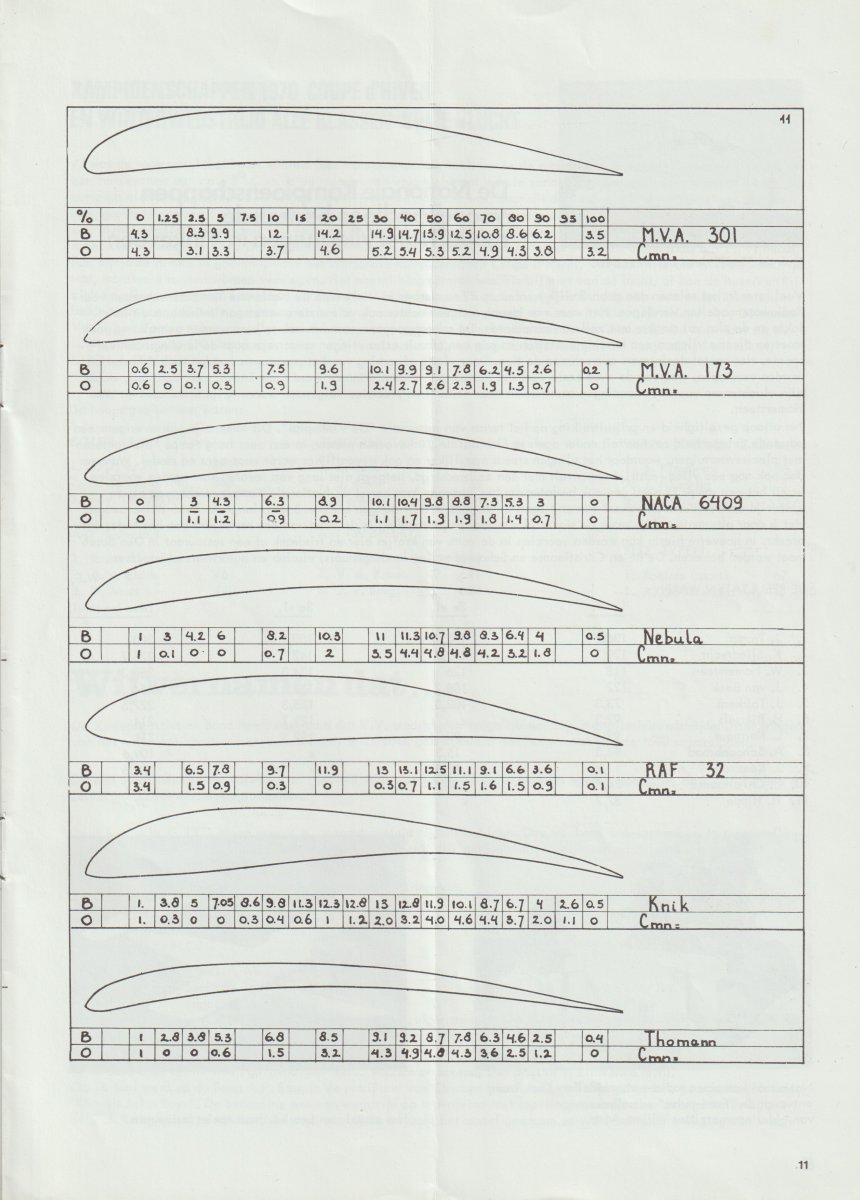 11
% 0 1.25 2.5 5 7.5 10 15 20 25 30 40 50 60 70 80 90 95 100
B 4.3 8.3 9.9 12 14.2 14.9 14.7 13.9 12.5 10.8 8.6 6.2 3.5 M.V.A. 301
O 4.3 3.1 3.3 3.7 4.6 5.2 5.4 5.3 5.2 4.9 4.3 3.8 3.2 Cmn=
B 0.6 2.5 3.7 5.3 7.5 9.6 10.1 9.9 9.1 7.8 6.2 4.5 2.6 0.2 M.V.A. 173
O 0.6 0 0.1 0.3 0.9 1.9 2.4 2.7 2.6 2.3 1.9 1.3 0.7 0 Cmn=
B 0 3 4.3 6.3 8.9 10.1 10.4 9.8 8.8 7.3 5.3 3 0 NACA 6409
O 0 -1.1 -1.2 -0.9 0.2 1.1 1.7 1.9 1.9 1.8 1.4 0.7 0 Cmn=
B 1 3 4.2 6 8.2 10.3 11 11.3 10.7 9.8 8.3 6.4 4 0.5 Nebula
O 1 0.1 0 0 0.7 2 3.5 4.4 4.8 4.8 4.2 3.2 1.8 0 Cmn=
B 3.4 6.5 7.8 9.7 11.9 13 13.1 12.5 11.1 9.1 6.6 3.6 0.1 RAF 32
O 3.4 1.5 0.9 0.3 0 0.3 0.7 1.1 1.5 1.6 1.5 0.9 0.1 Cmn=
B 1. 3.8 5 7.05 8.6 9.8 11.3 12.3 12.8 13 12.8 11.9 10.1 8.7 6.7 4 2.6 0.5 Knik
O 1. 0.3 0 0 0.3 0.4 0.6 1 1.2 2.0 3.2 4.0 4.6 4.4 3.7 2.0 1.1 0 Cmn=
B 1 2.8 3.8 5.3 6.8 8.5 9.1 9.2 8.7 7.8 6.3 4.6 2.5 0.4 Thomann
O 1 0 0 0.6 1.5 3.2 4.3 4.9 4.8 4.3 3.6 2.5 1.2 0 Cmn=
11